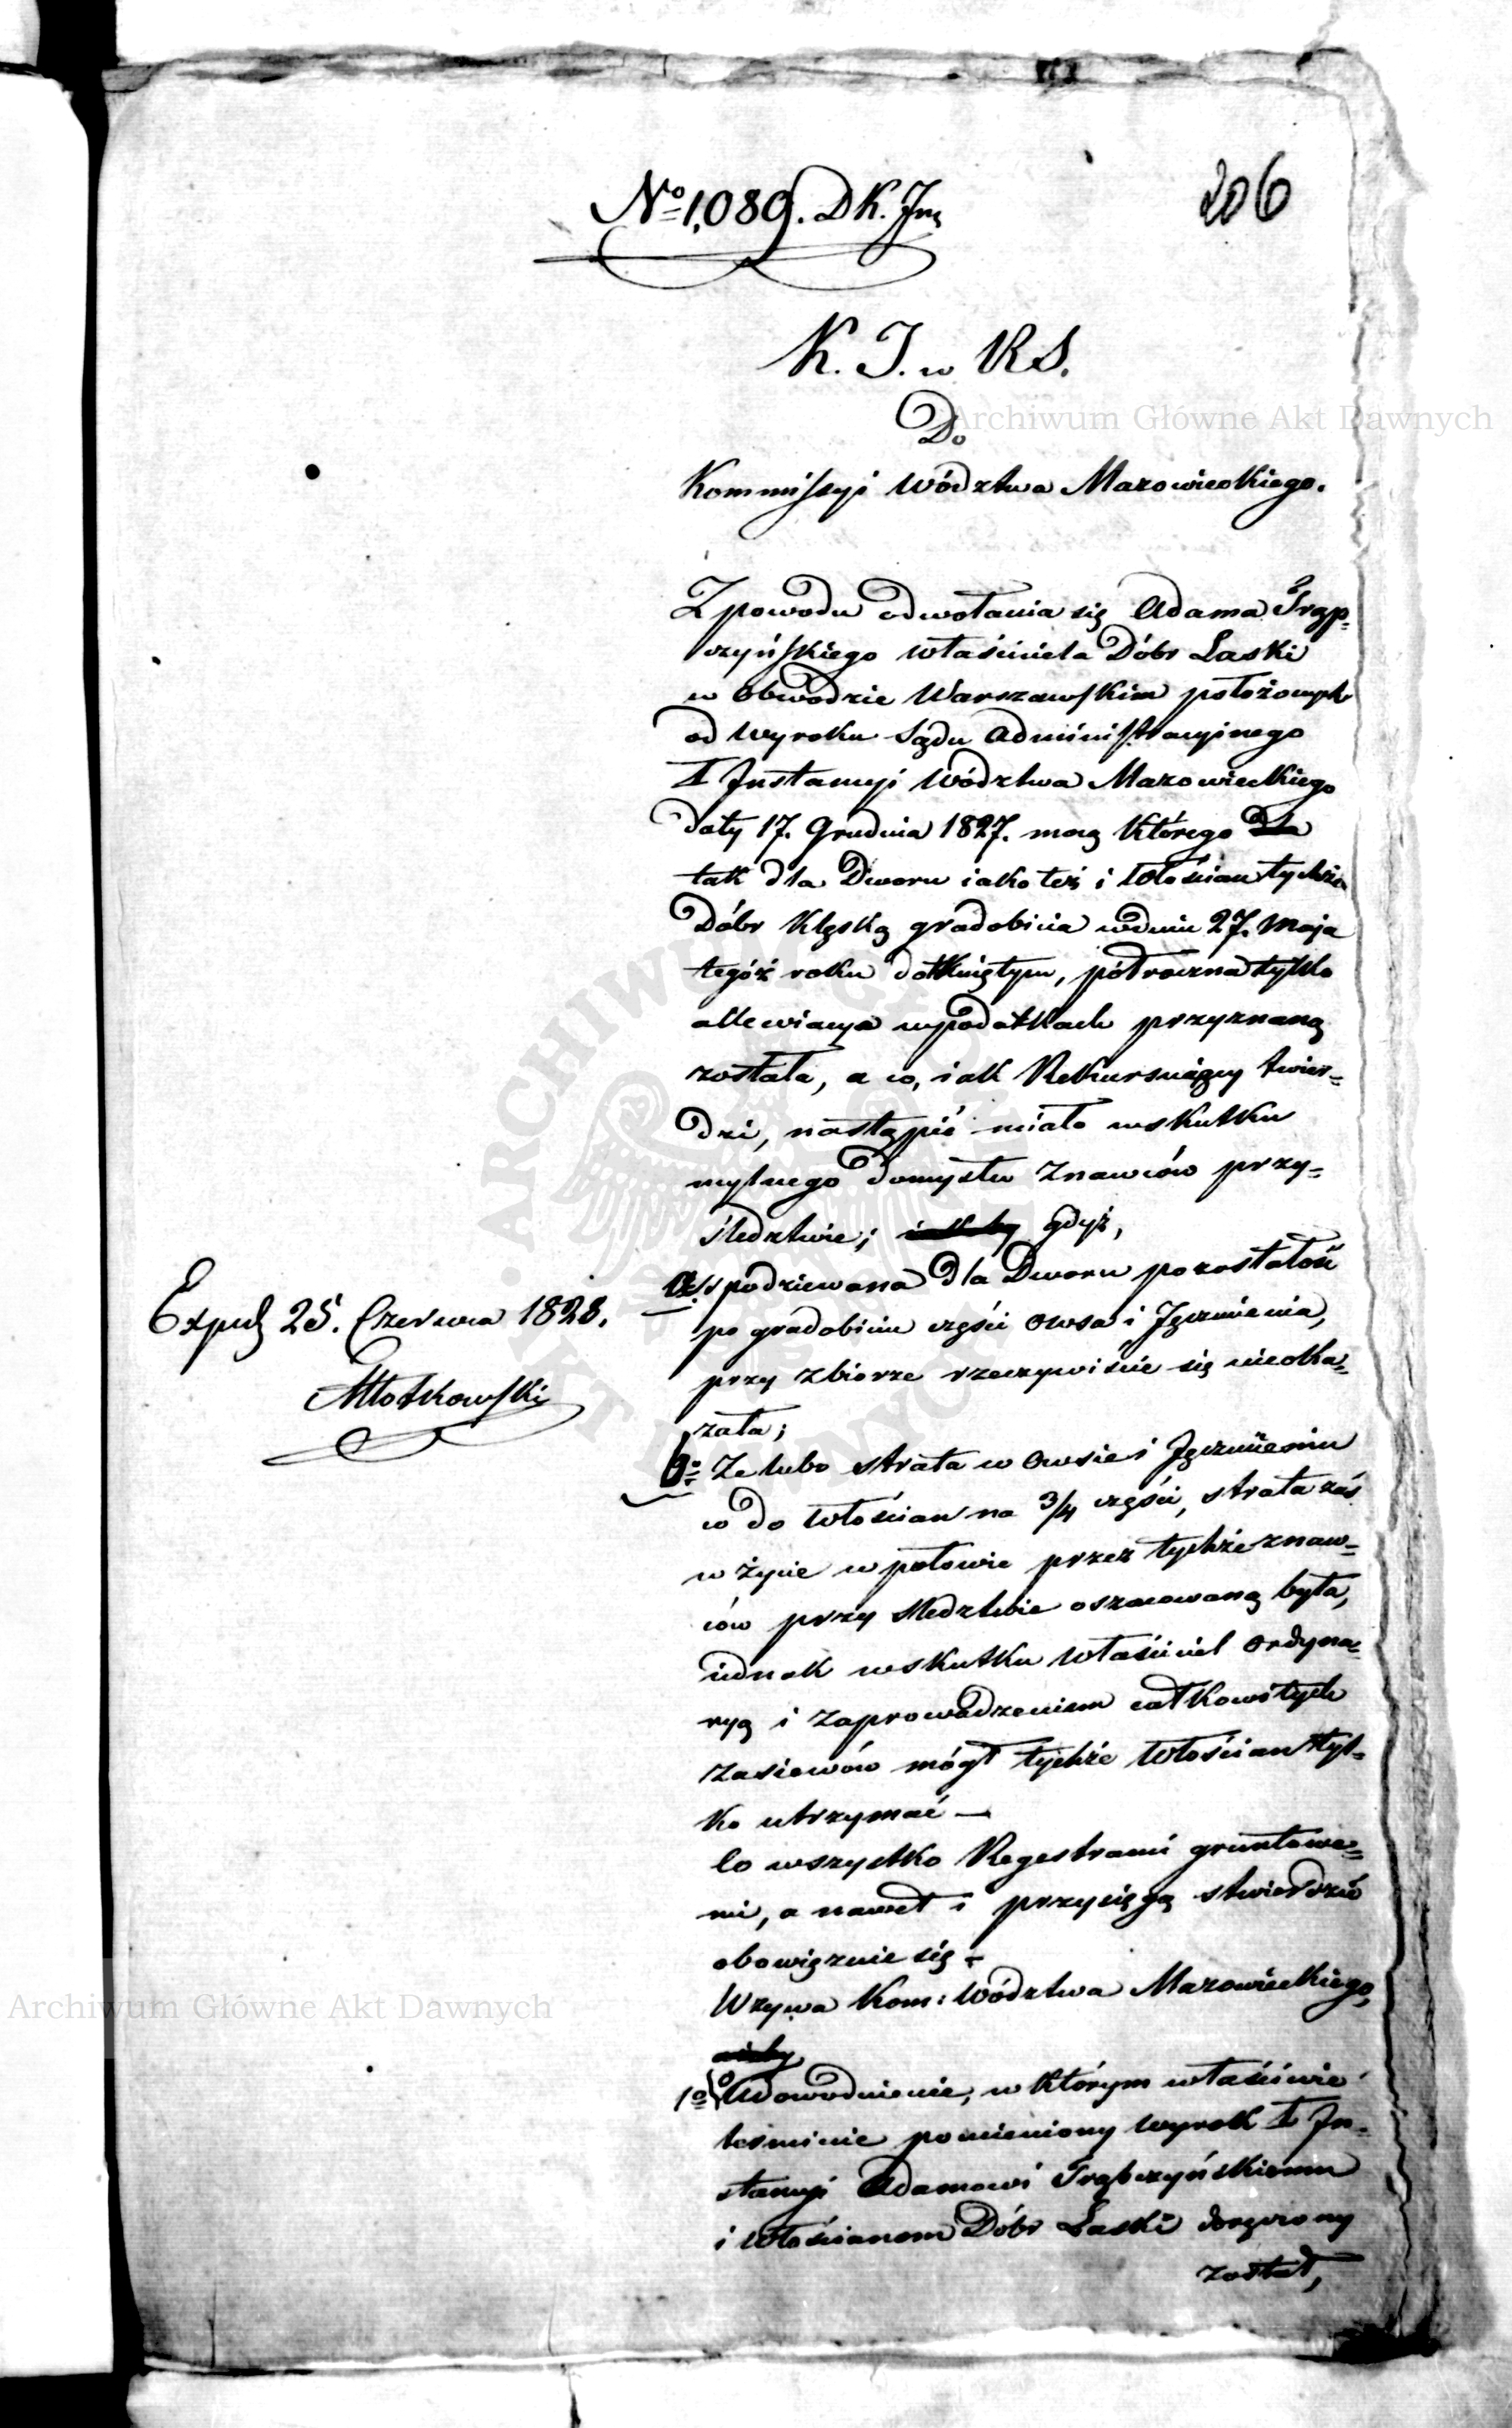 206
No 1,089. DK. Jnq
K. J. w RS.
Do
Kommissyi Wództwa Mazowieckiego.
Z powodu odwołania się Adama Trąp=
czyńskiego właściciela Dóbr Laski
w Obwodzie Warszawskim położonych
od wyroku Sądu Administracyjnego
I Instancyi Wództwa Mazowieckiego
daty 17. Grudnia 1827. mocą którego dla
tak dla Dworu iako też i Włościan tychże
Dóbr klęską gradobicia w dniu 27. Maja
tegóż roku dotkniętym, półroczna tylko
allewiacya w podatkach przyznaną
została, a co, iak Rekursuiący twier=
dzi, nastąpić miało w skutku
mylnego domysłu Znawców przy=
śledztwie; iakoby gdyż,
a. spodziewana dla Dworu pozostałość
po gradobiciu części Owsa i Jęczmienia,
przy zbiorze rzeczywiście się nieoka=
zała;
Exped 25. Czerwca 1828.
Młotkowski
b. Ze lubo strata w Owsie i Jęczmieniu
co do Włościan na 3/4 części, strata zaś
w życie w połowie przez tychże znaw=
ców przy śledztwie oszacowaną była,
iednak w skutku właściciel Ordyna=
ryą i zaprowadzeniem całkowitych
zasiewów mógł tychże Włościan tyl=
ko utrzymać —
Co wszystko Regestrami gruntowe=
mi, a nawet i przysięgą stwierdzić
obowięzuie się —
Wzywa Kom: Wództwa Mazowieckiego,
ażeby
1o Udowodnienie, w którym właściwie
terminie pomieniony wyrok I In=
stancyi Adamowi Trąbczyńskiemu
i Włościanom Dóbr Laski doręczony
został,
Archiwum Główne Akt Dawnych
Archiwum Główne Akt Dawnych